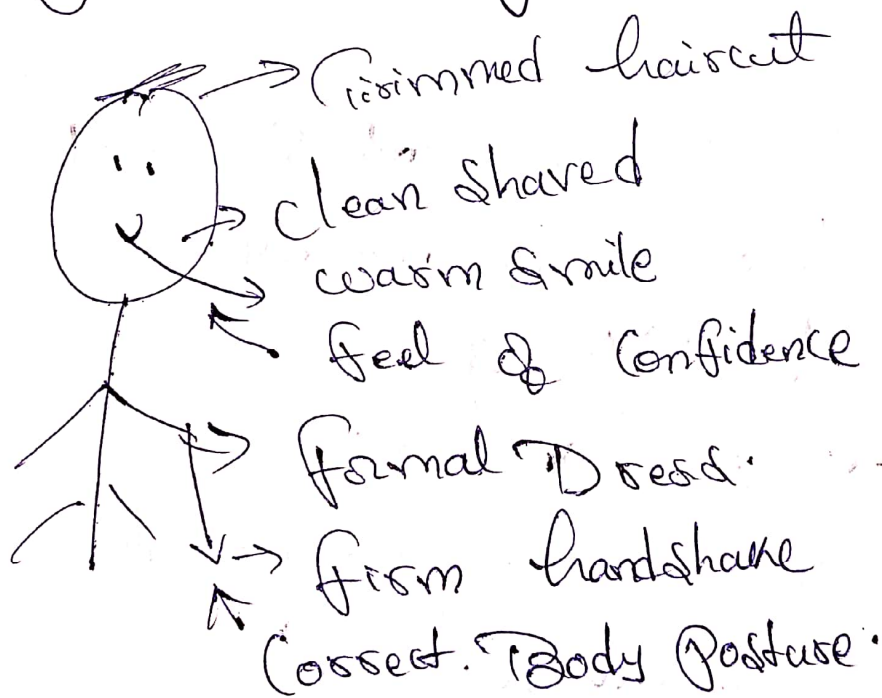 Trimmed haircut
clean shaved
warm smile
feel of Confidence
formal Dress.
firm handshake
Correct. Body Posture.